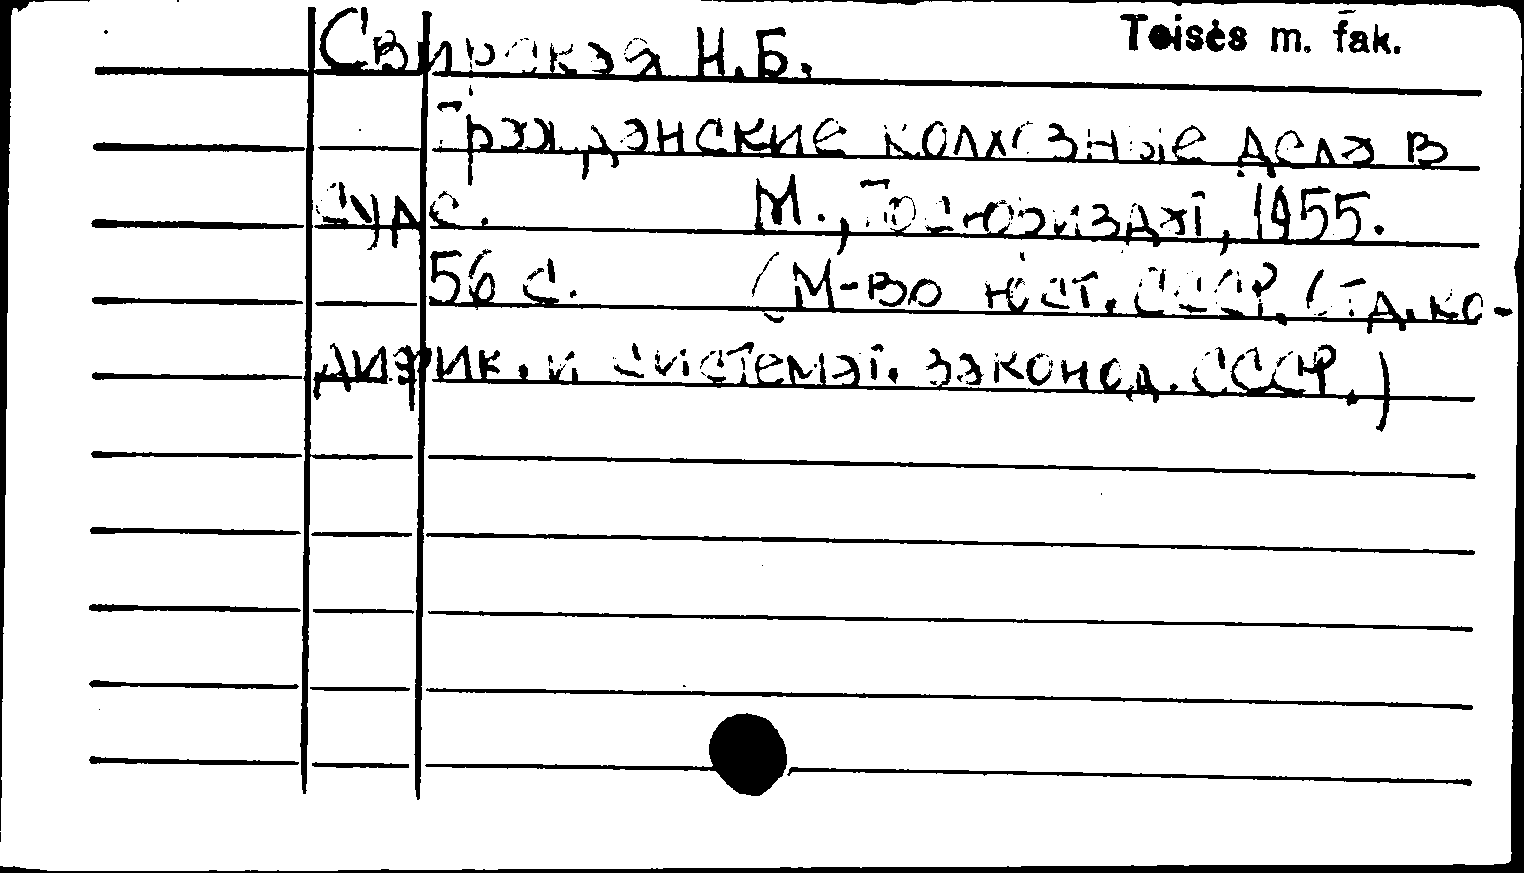 Teisės m. fak.
Свирская Н.Б.
Гражданские колхозные дела в
суде. М., Госюриздат, 1955.
56 с. (М-во юст. СССР. Отд. ко-
дифик. и системат. законод. СССР.)